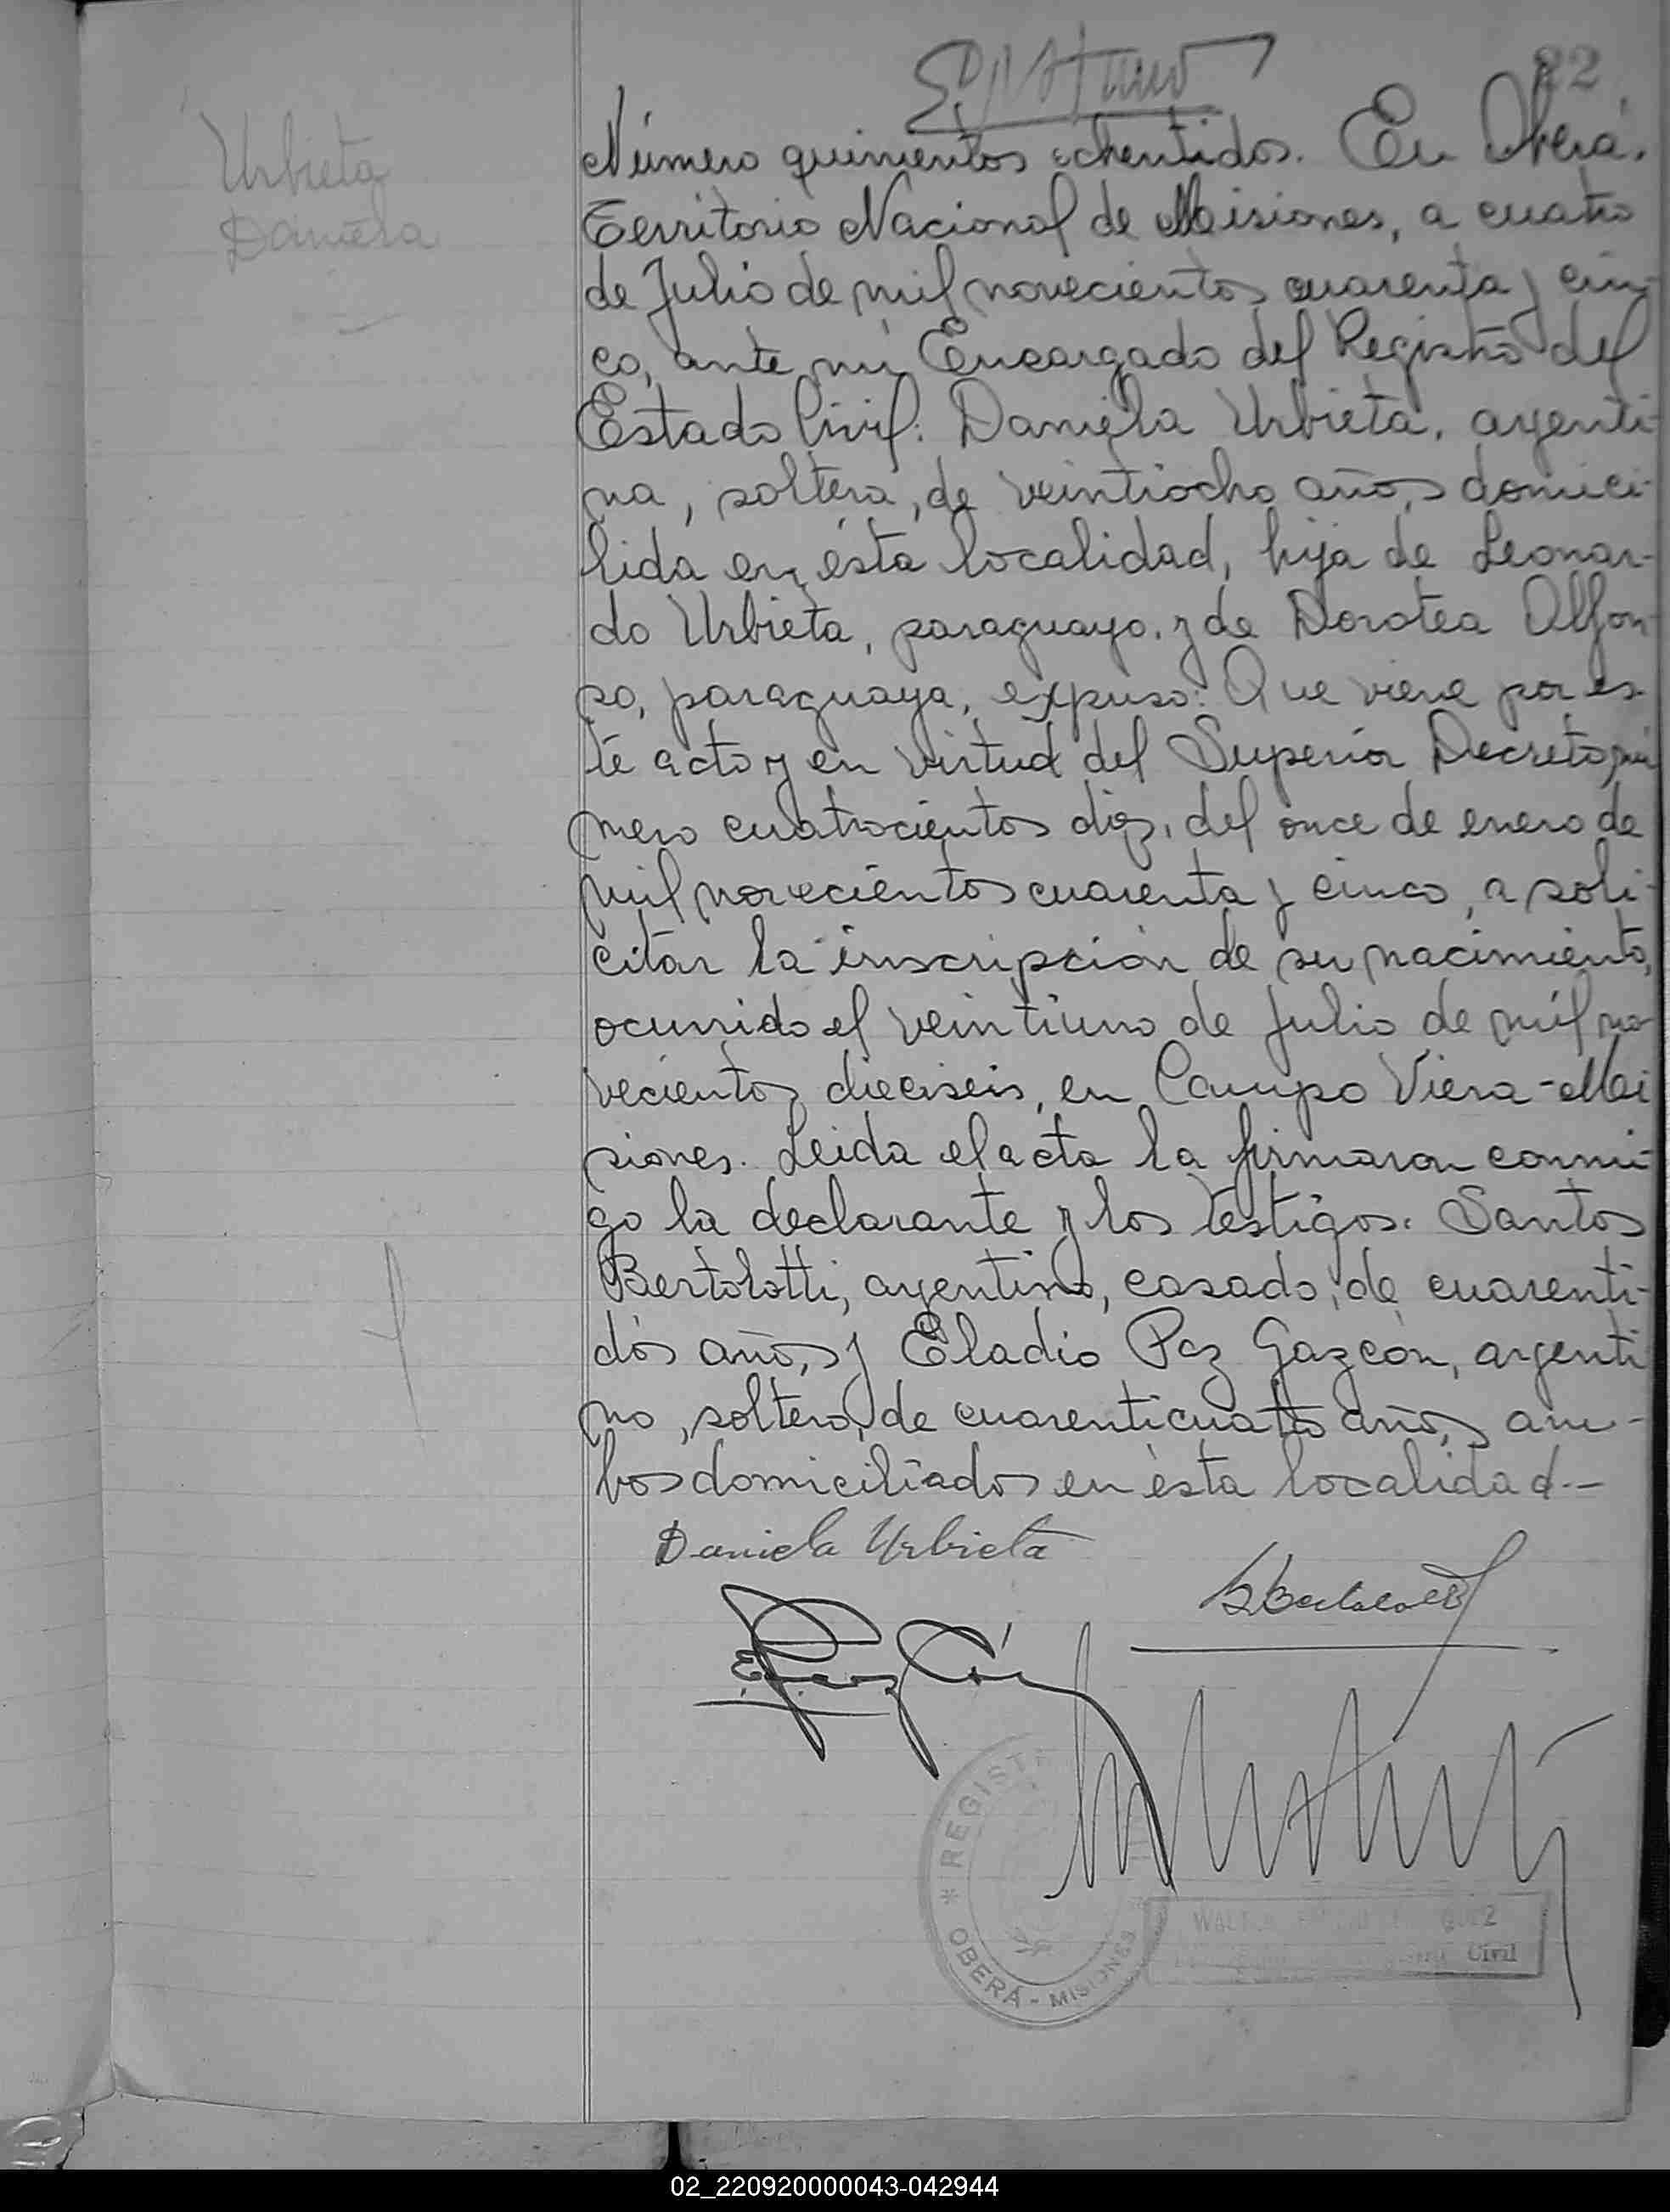 22
Urbieta
Daniela
Número quinientos ochentidos. En Oberá,
Territorio Nacional de Misiones, a cuatro
de Julio de mil novecientos cuarenta y cin-
co, ante mí Encargado del Registro del
Estado Civil: Daniela Urbieta, argenti-
na, soltera, de veintiocho años, domici-
lida en ésta localidad, hija de Leonar-
do Urbieta, paraguayo, y de Dorotea Alfon-
so, paraguaya, expuso: Que viene por es-
te acto y en virtud del Superior Decreto, nú
mero cuatrocientos diez, del once de enero de
mil novecientos cuarenta y cinco, a soli-
citar la inscripción de su nacimiento,
ocurrido el veintiuno de Julio de mil no-
vecientos dieciseis, en Campo Viera - Mi
siones. Leida el acta la firmaron conmi-
go la declarante y los testigos: Santos
Bertolotti, argentino, casado, de cuarenti-
dós años, y Eladio Paz Gazcón, argenti
no, soltero, de cuarenticuatro años, am-
bos domiciliados en ésta localidad.--
Daniela Urbieta
REGISTR
OBERÁ - MISIONES
Civil
02_220920000043-042944